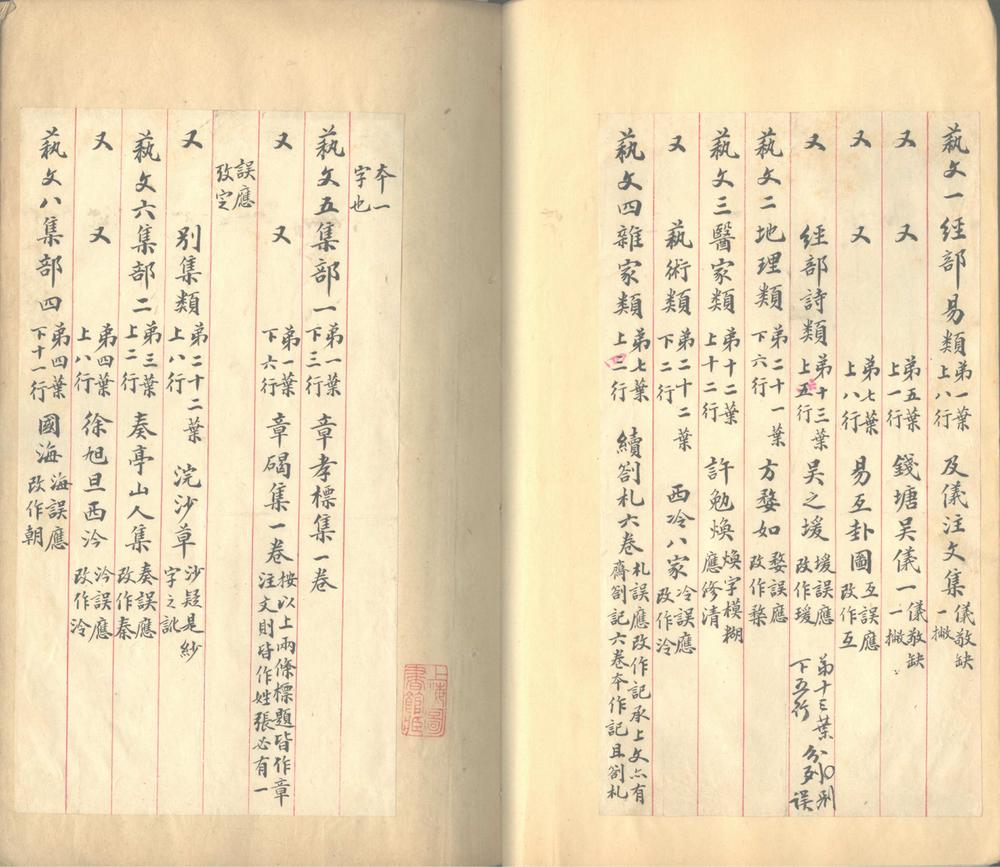 藝文一經部易類 第一葉上八行 及儀注文集 儀敬缺一撇
又 又 第五葉上一行 錢塘吴儀一 儀敬缺一撇
又 又 第七葉上八行 易互卦圖 互誤應改作互
又 經部詩類 第十三葉上五行 吴之堫 堫誤應改作瑗 第十三葉下五行
藝文二地理類 第二十一葉下六行 方婺如 婺誤應改作楘
藝文三醫家類 第十二葉上十二行 許勉煥 煥字模糊應修清
又 藝術類 第二十二葉下二行 西冷八家 冷誤應改作泠
藝文四雜家類 第七葉上三行 續劄札六卷 札誤應改作記承上文亦有齋劄記六卷夲作記且劄札
夲一字也
藝文五集部一 第一葉下三行 章孝標集一卷
又 又 第一葉下六行 章碣集一卷 按以上兩條標題皆作章注文則皆作姓張必有一
誤應改定
又 别集類 第二十二葉上八行 浣沙草 沙疑是紗字之訛
藝文六集部二 第三葉上二行 奏亭山人集 奏誤應改作秦
又 又 第四葉上八行 徐旭旦西汵 汵誤應改作泠
藝文八集部四 第四葉下十一行 國海 海誤應改作朝
上海圖書館藏